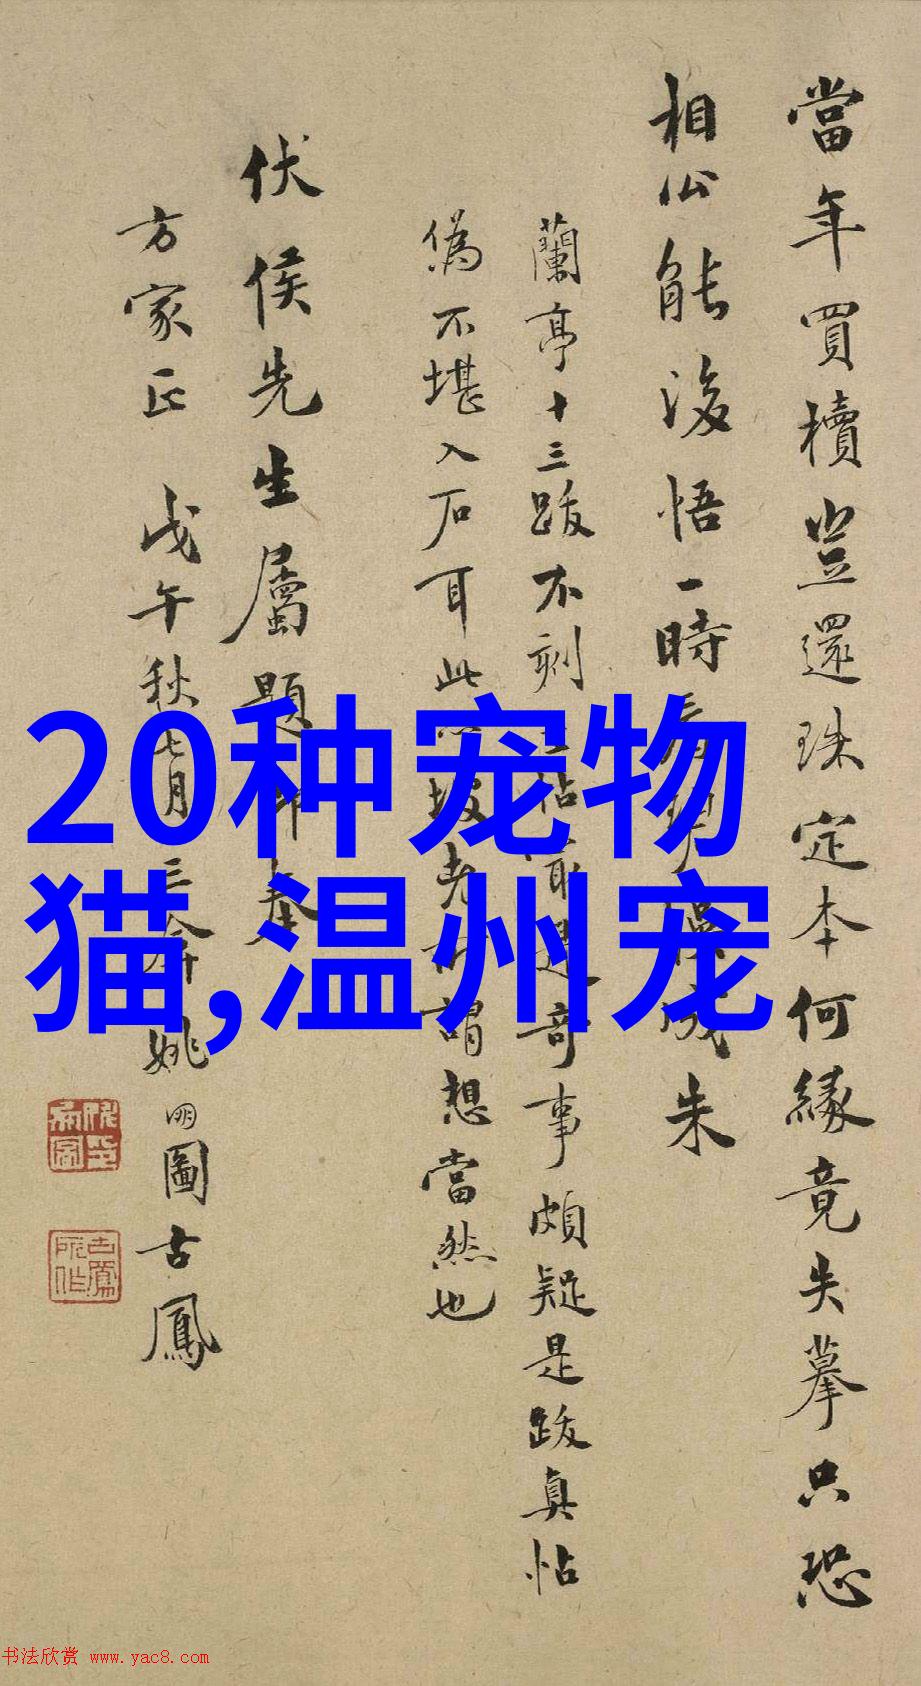 當年買櫝豈還珠定本何緣竟失摹只恐
相公能浚悟一時成朱
蘭亭十三跋不刻帖是奇事頗疑是跋真帖
偽不堪入石耳此坡老所謂想當然也
伏侯先生屬題即奉
方家正 戊午秋七月三 姚朙圖古鳳
20种宠物
猫,温州宠
书法欣赏 www.yac8.com